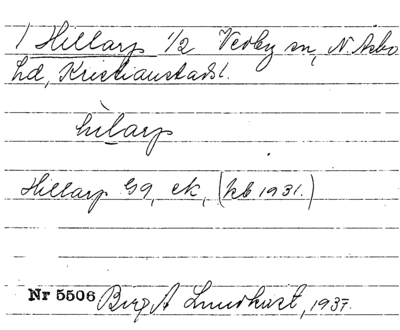 1 Hillarp 1/2 Vedby sn, N. Åsbo
hd, Kristianstads l.
hìlarp
Hillarp Gg, ek, (kb 1931.)
Nr 5506 Birg. A Lundkvist, 1937.